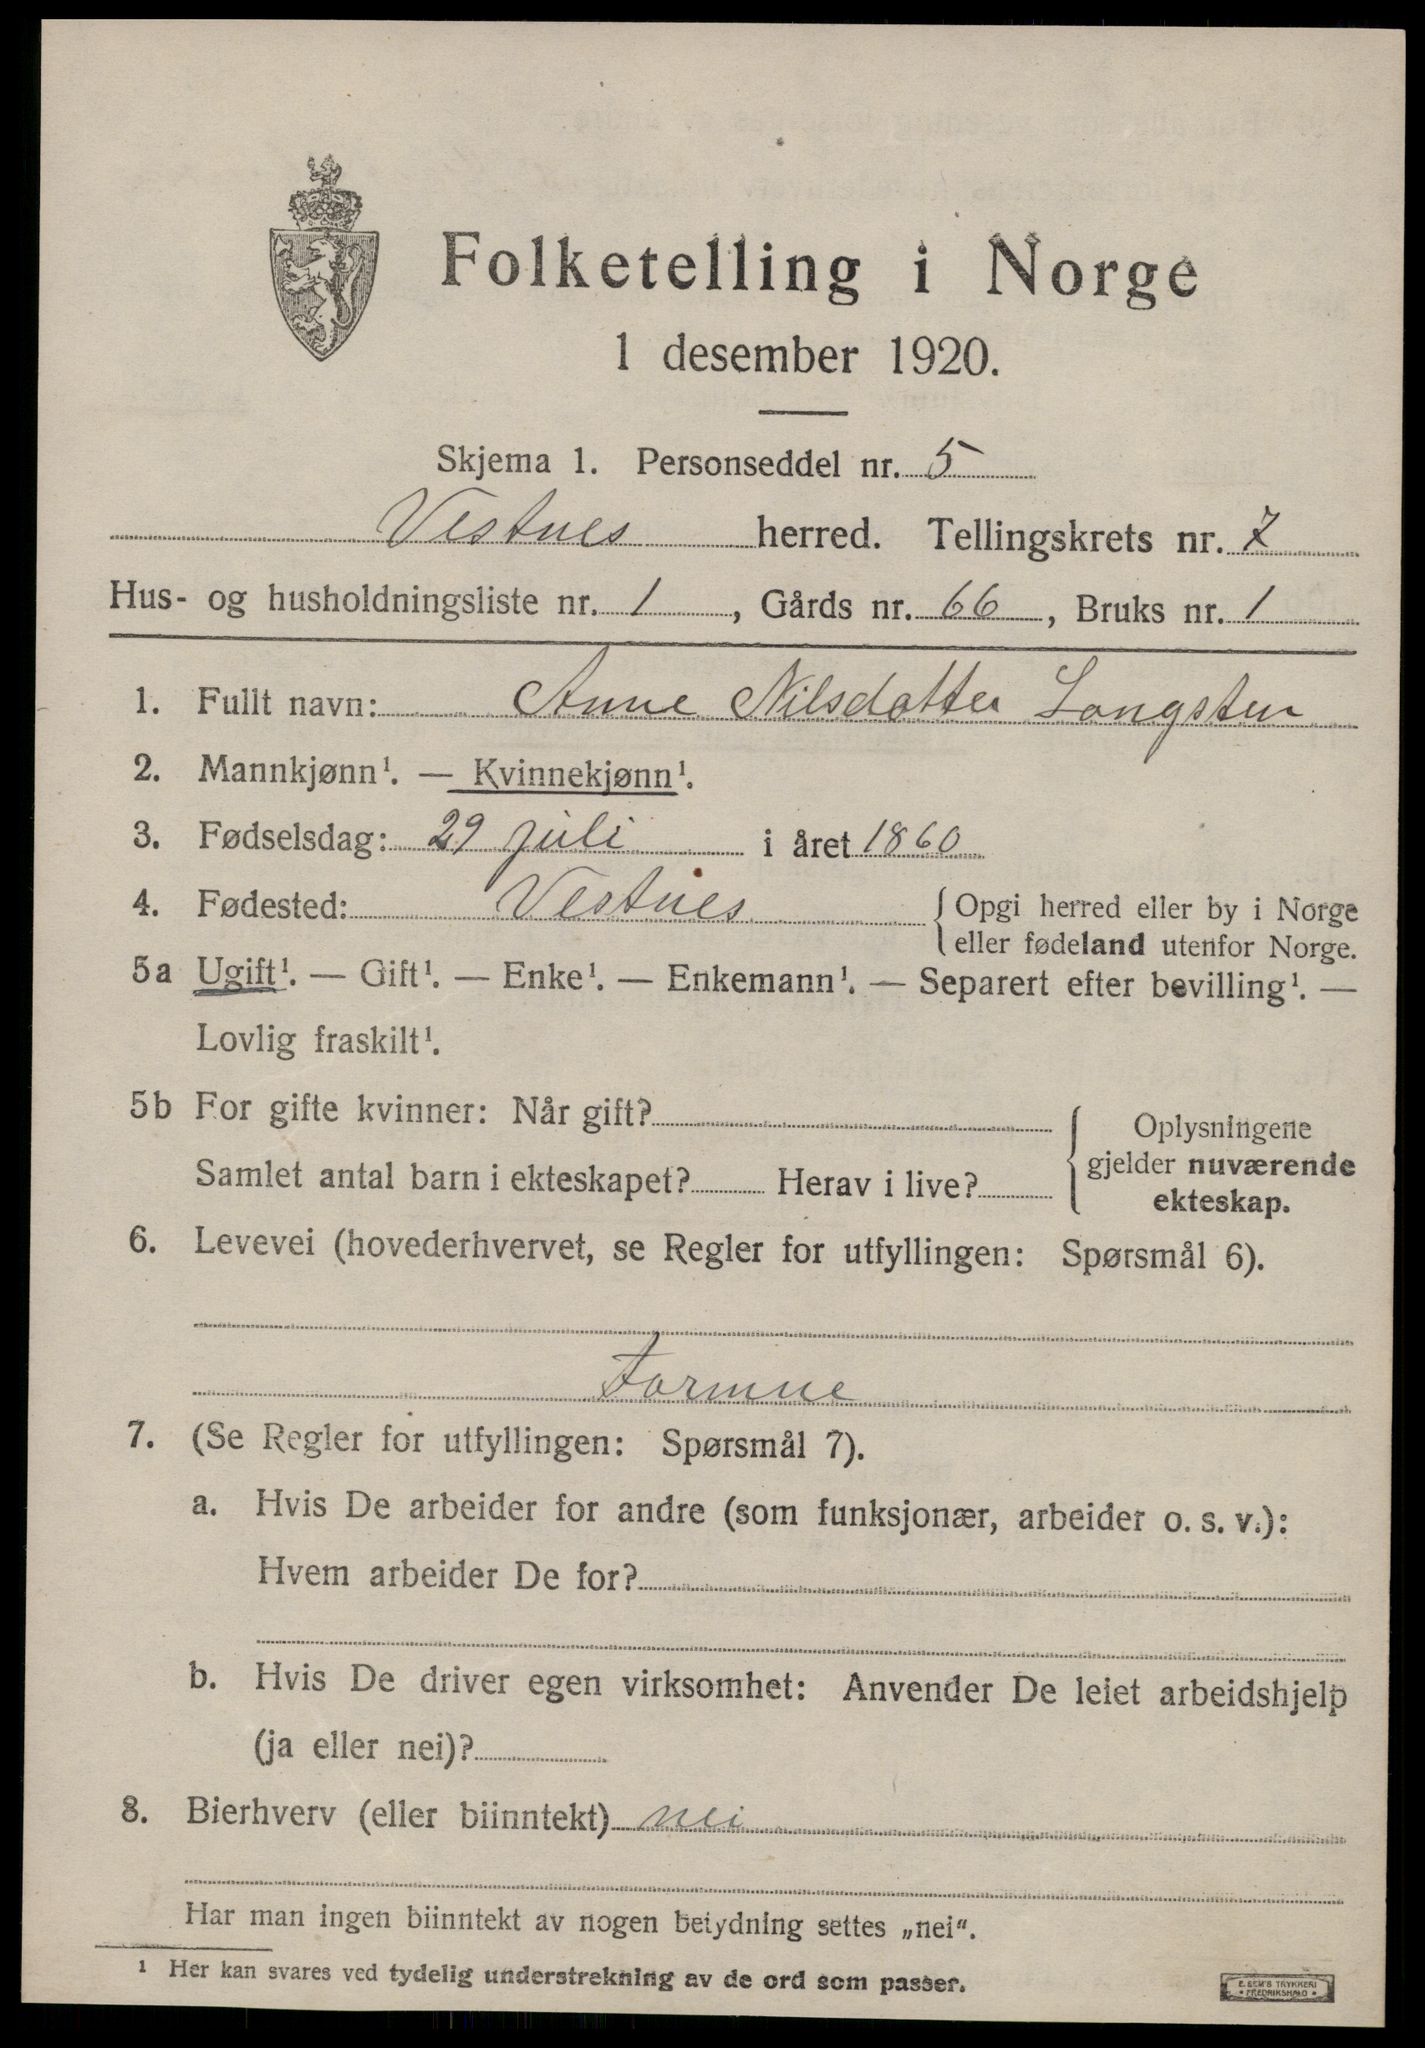 Folketelling i Norge
1 desember 1920.
Skjema 1. Personseddel nr. 5
Vestnes herred. Tellingskrets nr. 7
Hus- og husholdningsliste nr. 1, Gårds nr. 66, Bruks nr. 1
1. Fullt navn: Anne Nilsdatter Langsten
2. Mannkjønn¹. — Kvinnekjønn¹.
3. Fødselsdag: 29 juli i året 1860
4. Fødested: Vestnes { Opgi herred eller by i Norge
eller fødeland utenfor Norge.
5a Ugift¹. — Gift¹. — Enke¹. — Enkemann¹. — Separert efter bevilling¹. —
Lovlig fraskilt¹.
5b For gifte kvinner: Når gift? { Oplysningene
gjelder nuværende
ekteskap.
Samlet antal barn i ekteskapet? Herav i live?
6. Levevei (hovederhvervet, se Regler for utfyllingen: Spørsmål 6).
Formue
7. (Se Regler for utfyllingen: Spørsmål 7).
a. Hvis De arbeider for andre (som funksjonær, arbeider o. s. v.):
Hvem arbeider De for?
b. Hvis De driver egen virksomhet: Anvender De leiet arbeidshjelp
(ja eller nei)?
8. Bierhverv (eller biinntekt) nei
Har man ingen biinntekt av nogen betydning settes „nei“.
¹ Her kan svares ved tydelig understrekning av de ord som passer.
E. SEM'S TRYKKERI
• FREDRIKSHALD •